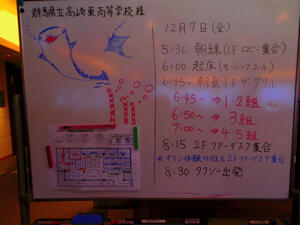 群馬県立高崎東高等学校 様
12月7日(金)
5:30 朝練(1F ロビー集合)
6:00 起床(モーニングコール)
6:45~ 朝食 1F ザ・グリル
6:45~ ⇒ 1・2組
6:50~ ⇒ 3組
7:00~ ⇒ 4・5組
8:15 2F ツアーデスク集合
2F ツアーデスク集合
8:30 タクシー出発